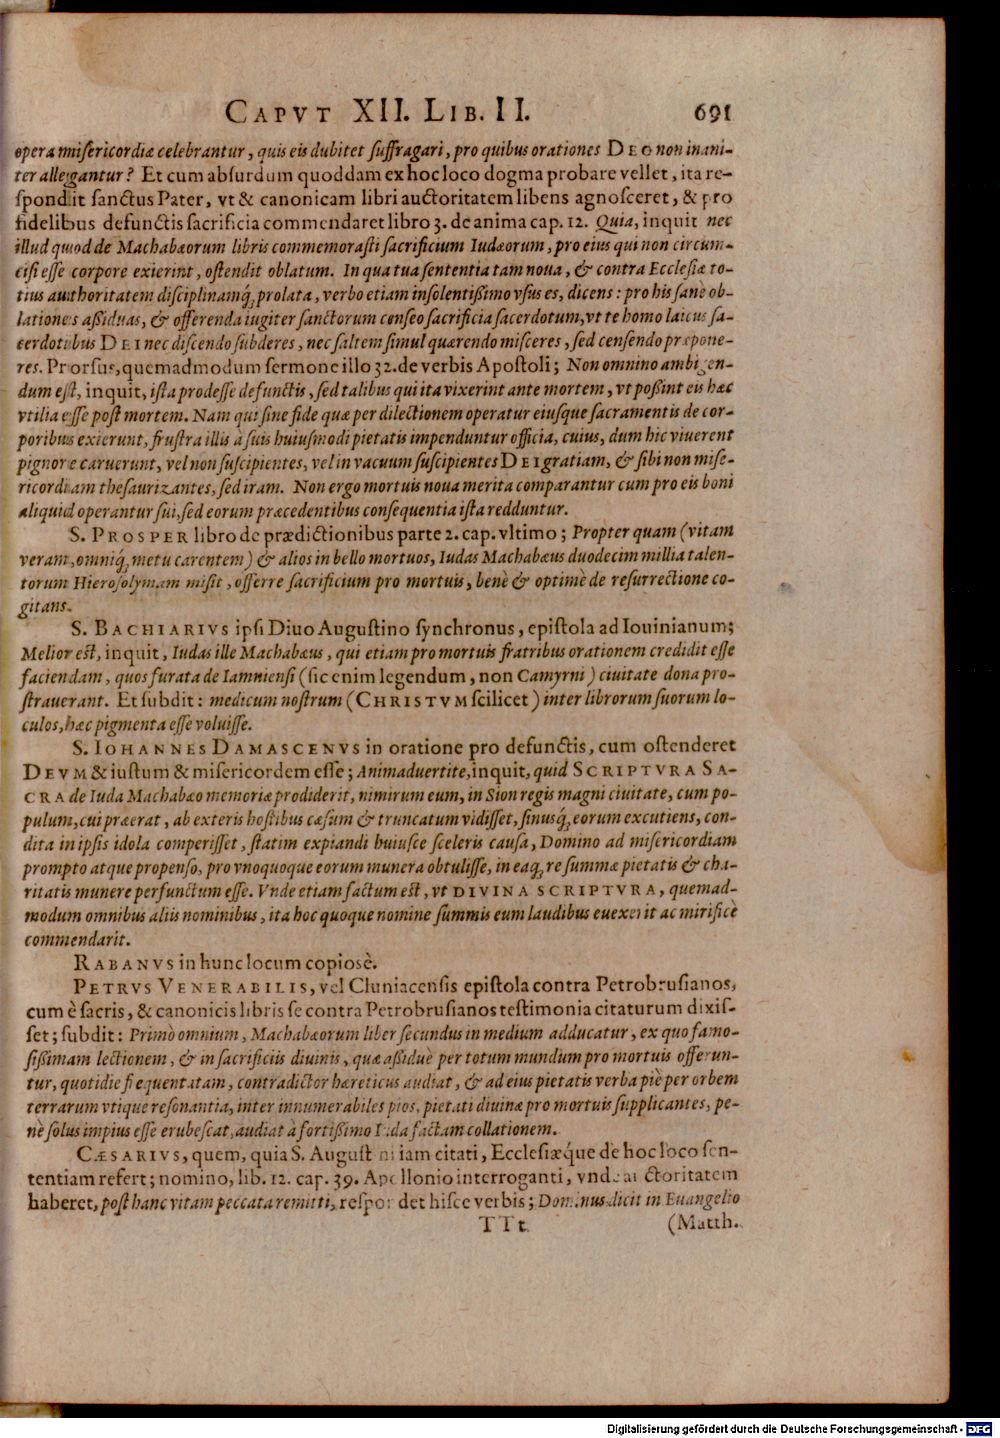 CAPVT XII. LIB. II. 691
opera misericordiæ celebrantur, quis eis dubitet suffragari, pro quibus orationes DEO non inani-
ter allegantur? Et cum absurdum quoddam ex hoc loco dogma probare vellet, ita re-
spondit sanctus Pater, vt & canonicam libri auctoritatem libens agnosceret, & pro
fidelibus defunctis sacrificia commendaret libro 3. de anima cap. 12. Quia, inquit nec
illud quod de Machabæorum libris commemorasti sacrificium Iudæorum, pro eius qui non circum-
cisi esse corpore exierint, ostendit oblatum. In qua tua sententia tam noua, & contra Ecclesiæ to-
tius authoritatem disciplinamq́; prolata, verbo etiam insolentißimo vsus es, dicens: pro his sanè ob-
lationes aßiduas, & offerenda iugiter sanctorum censeo sacrificia sacerdotum, vt te homo laicus sa-
cerdotibus DEI nec discendo subderes, nec saltem simul quærendo misceres, sed censendo præpone-
res. Prorsus, quemadmodum sermone illo 32. de verbis Apostoli; Non omnino ambigen-
dum est, inquit, ista prodesse defunctis, sed talibus qui ita vixerint ante mortem, vt poßint eis hæc
vtilia esse post mortem. Nam qui sine fide quæ per dilectionem operatur eiusque sacramentis de cor-
poribus exierunt, frustra illis à suis huiusmodi pietatis impenduntur officia, cuius, dum hic viuerent
pignore caruerunt, vel non suscipientes, vel in vacuum suscipientes DEI gratiam, & sibi non mise-
ricordiam thesaurizantes, sed iram. Non ergo mortuis noua merita comparantur cum pro eis boni
aliquid operantur sui, sed eorum præcedentibus consequentia ista redduntur.
S. PROSPER libro de prædictionibus parte 2. cap. vltimo; Propter quam (vitam
veram, omniq́; metu carentem) & alios in bello mortuos, Iudas Machabæus duodecim millia talen-
torum Hierosolymam misit, offerre sacrificium pro mortuis, benè & optimè de resurrectione co-
gitans.
S. BACHIARIVS ipsi Diuo Augustino synchronus, epistola ad Iouinianum;
Melior est, inquit, Iudas ille Machabæus, qui etiam pro mortuis fratribus orationem credidit esse
faciendam, quos furata de Iamniensi (sic enim legendum, non Camyrni) ciuitate dona pro-
strauerant. Et subdit: medicum nostrum (CHRISTVM scilicet) inter librorum suorum lo-
culos, hæc pigmenta esse voluisse.
S. IOHANNES DAMASCENVS in oratione pro defunctis, cum ostenderet
DEVM & iustum & misericordem esse; Animaduertite, inquit, quid SCRIPTVRA SA-
CRA de Iuda Machabæo memoriæ prodiderit, nimirum eum, in Sion regis magni ciuitate, cum po-
pulum, cui præerat, ab exteris hostibus cæsum & truncatum vidisset, sinusq́; eorum excutiens, con-
dita in ipsis idola comperisset, statim expiandi huiusce sceleris causa, Domino ad misericordiam
prompto atque propenso, pro vnoquoque eorum munera obtulisse, in eaq́; re summæ pietatis & cha-
ritatis munere perfunctum esse. Vnde etiam factum est, vt DIVINA SCRIPTVRA, quemad-
modum omnibus aliis nominibus, ita hoc quoque nomine summis eum laudibus euexerit ac mirificè
commendarit.
RABANVS in hunc locum copiosè.
PETRVS VENERABILIS, vel Cluniacensis epistola contra Petrobrusianos,
cum è sacris, & canonicis libris se contra Petrobrusianos testimonia citaturum dixis-
set; subdit: Primò omnium, Machabæorum liber secundus in medium adducatur, ex quo famo-
sißimam lectionem, & in sacrificiis diuinis, quæ aßiduè per totum mundum pro mortuis offerun-
tur, quotidie frequentatam, contradictor hæreticus audiat, & ad eius pietatis verba piè per orbem
terrarum vtique resonantia, inter innumerabiles pios, pietati diuinæ pro mortuis supplicantes, pe-
nè solus impius esse erubescat, audiat à fortißimo Iuda factam collationem.
CÆSARIVS, quem, quia S. August ni iam citati, Ecclesiæq́ue de hoc loco sen-
tentiam refert; nomino, lib. 12. cap. 39. Apollonio interroganti, vnde auctoritatem
haberet, post hanc vitam peccata remitti, respondet hisce verbis; Dominus dicit in Euangelio
TTt (Matth.
Digitalisierung gefördert durch die Deutsche Forschungsgemeinschaft - DFG